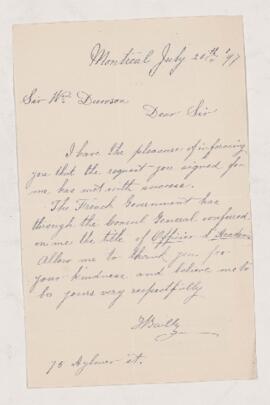 Montreal July 20th '97
Sir Wm Dawson
Dear Sir
I have the pleasure of informing
you that the request you signed for
me has met with success.
The French Government has
through the Consul General conferred
on me the title of Officier d'
Allow me to thank you for
your kindness and believe me to
be yours very respectfully
75 Aylmer st.